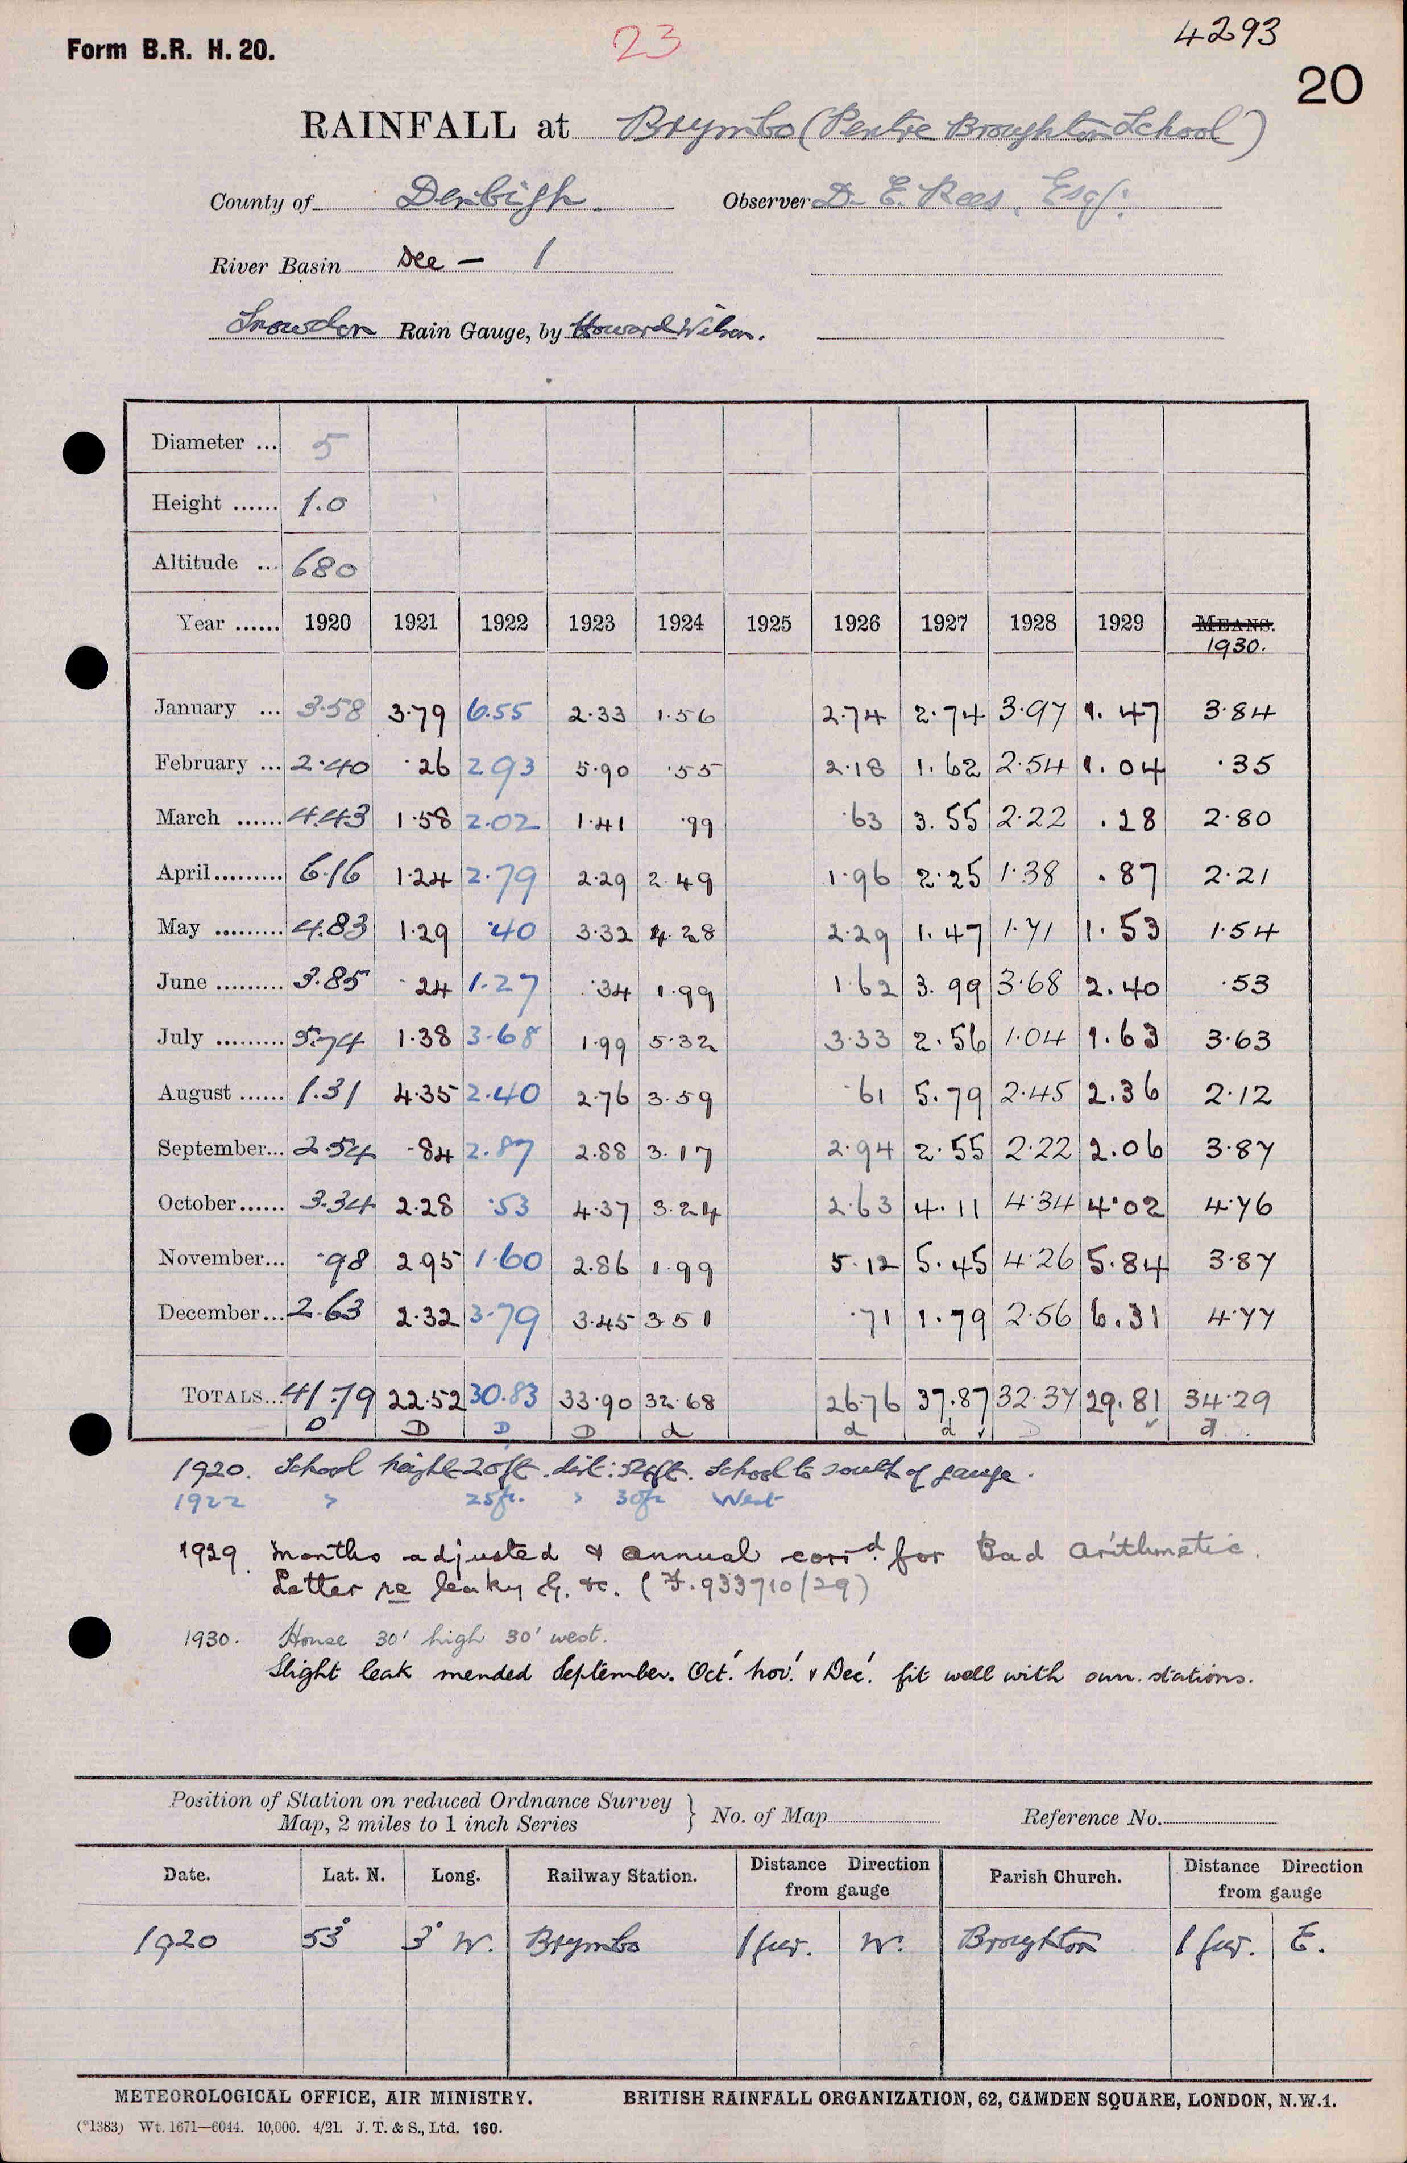 Form B.R. H. 20.
23
4293
20
RAINFALL at Brymbo (Pentre Broughton School)
County of Denbigh Observer D. E. Rees, Esq:
River Basin Dee - 1
Snowdon Rain Gauge, by Howard Wilson.
Diameter ... 5
Height ...... 1.0
Altitude ... 680
Year ...... 1920 1921 1922 1923 1924 1925 1926 1927 1928 1929 MEANS. 1930.
January ... 3.58 3.79 6.55 2.33 1.56 2.74 2.74 3.97 1.47 3.84
February ... 2.40 .26 2.93 5.90 .55 2.18 1.62 2.54 1.04 .35
March ...... 4.43 1.58 2.02 1.41 .99 .63 3.55 2.22 .28 2.80
April ......... 6.16 1.24 2.79 2.29 2.49 1.96 2.25 1.38 .87 2.21
May ......... 4.83 1.29 .40 3.32 4.28 2.29 1.47 1.71 1.53 1.54
June ......... 3.85 .24 1.27 .34 1.99 1.62 3.99 3.68 2.40 .53
July ......... 5.74 1.38 3.68 1.99 5.32 3.33 2.56 1.04 1.63 3.63
August ...... 1.31 4.35 2.40 2.76 3.59 .61 5.79 2.45 2.36 2.12
September... 2.54 .84 2.87 2.88 3.17 2.94 2.55 2.22 2.06 3.87
October...... 3.34 2.28 .53 4.37 3.24 2.63 4.11 4.34 4.02 4.76
November... .98 2.95 1.60 2.86 1.99 5.12 5.45 4.26 5.84 3.87
December... 2.63 2.32 3.79 3.45 3.51 .71 1.79 2.56 6.31 4.77
TOTALS... 41.79 22.52 30.83 33.90 32.68 26.76 37.87 32.37 29.81 34.29
D D D D d d d D d
1920. School height 20ft. dist: 52ft. School to south of gauge.
1922 " 25ft. " 30ft West
1929. Months adjusted & annual corrd. for Bad arithmetic.
Letter re leaky G. &c. (F.933710/29)
1930. House 30' high 30' west.
Slight leak mended September. Oct! Nov! & Dec! fit well with surr. stations.
Position of Station on reduced Ordnance Survey
Map, 2 miles to 1 inch Series } No. of Map Reference No.
Date. Lat. N. Long. Railway Station. Distance Direction from gauge Parish Church. Distance Direction from gauge
1920 53° 3° W. Brymbo 1 fur. W. Broughton 1 fur. E.
METEOROLOGICAL OFFICE, AIR MINISTRY. BRITISH RAINFALL ORGANIZATION, 62, CAMDEN SQUARE, LONDON, N.W.1.
(*1383) Wt. 1671—6044. 10,000. 4/21. J. T. & S., Ltd. 160.